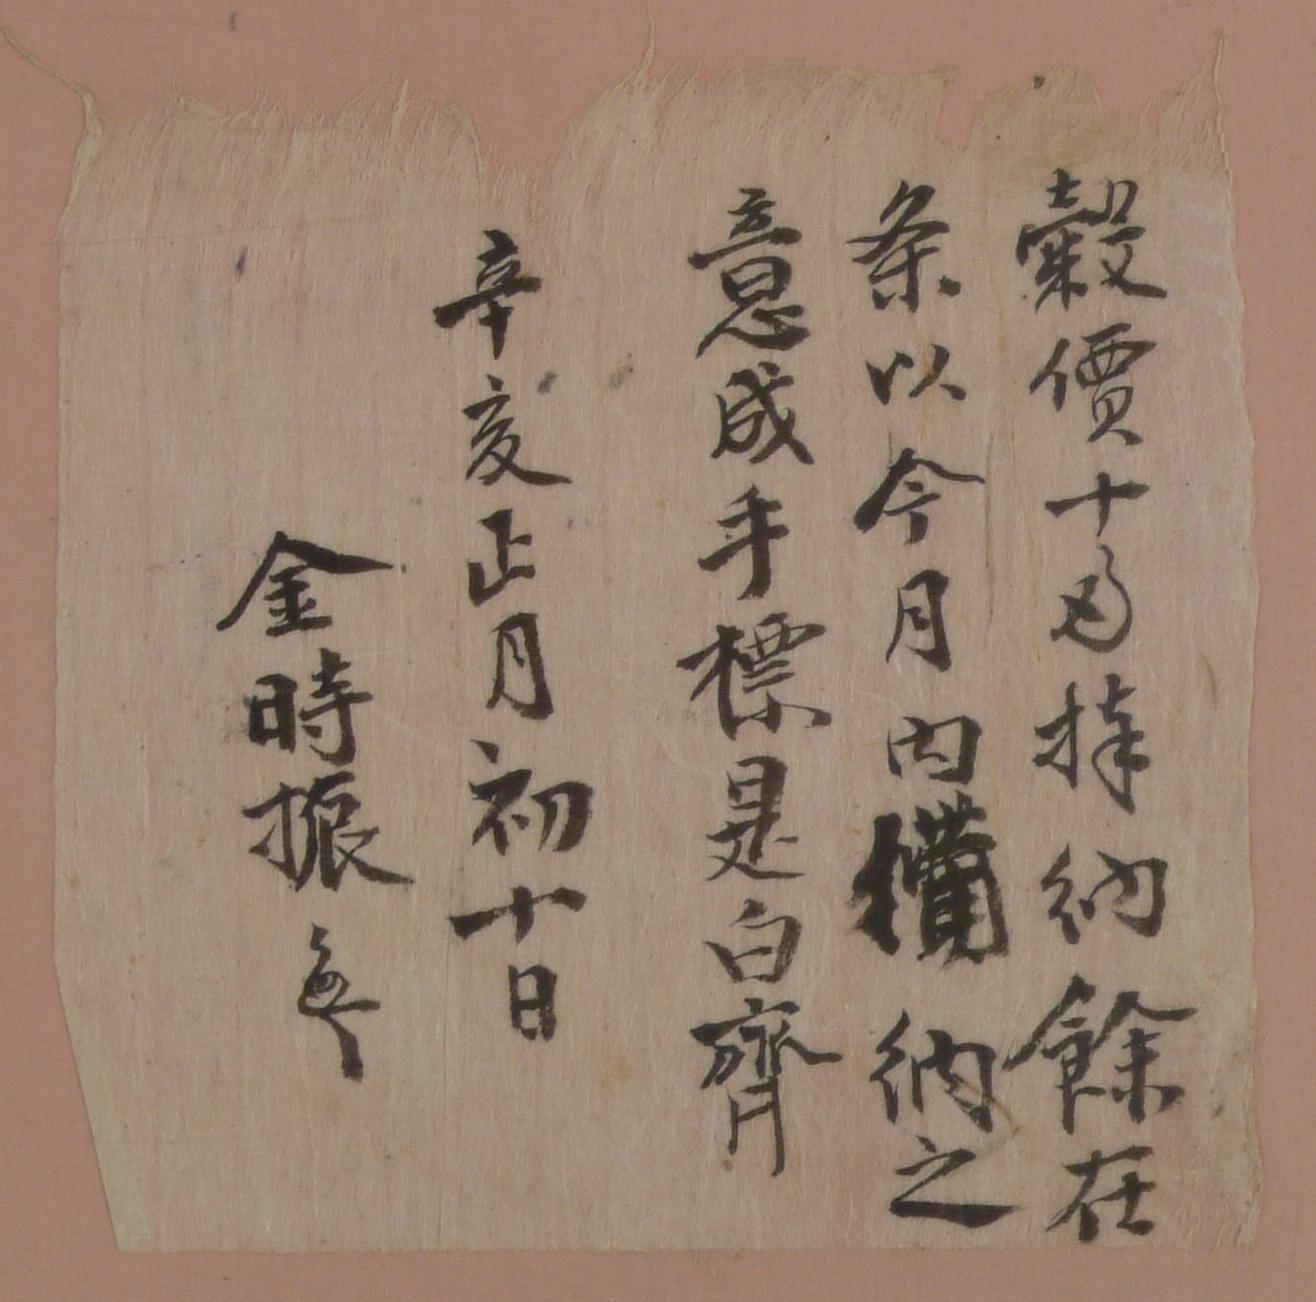 穀價十兩捧納餘在
条以今月內備納之
意成手標是白齊
辛亥正月初十日
金時振